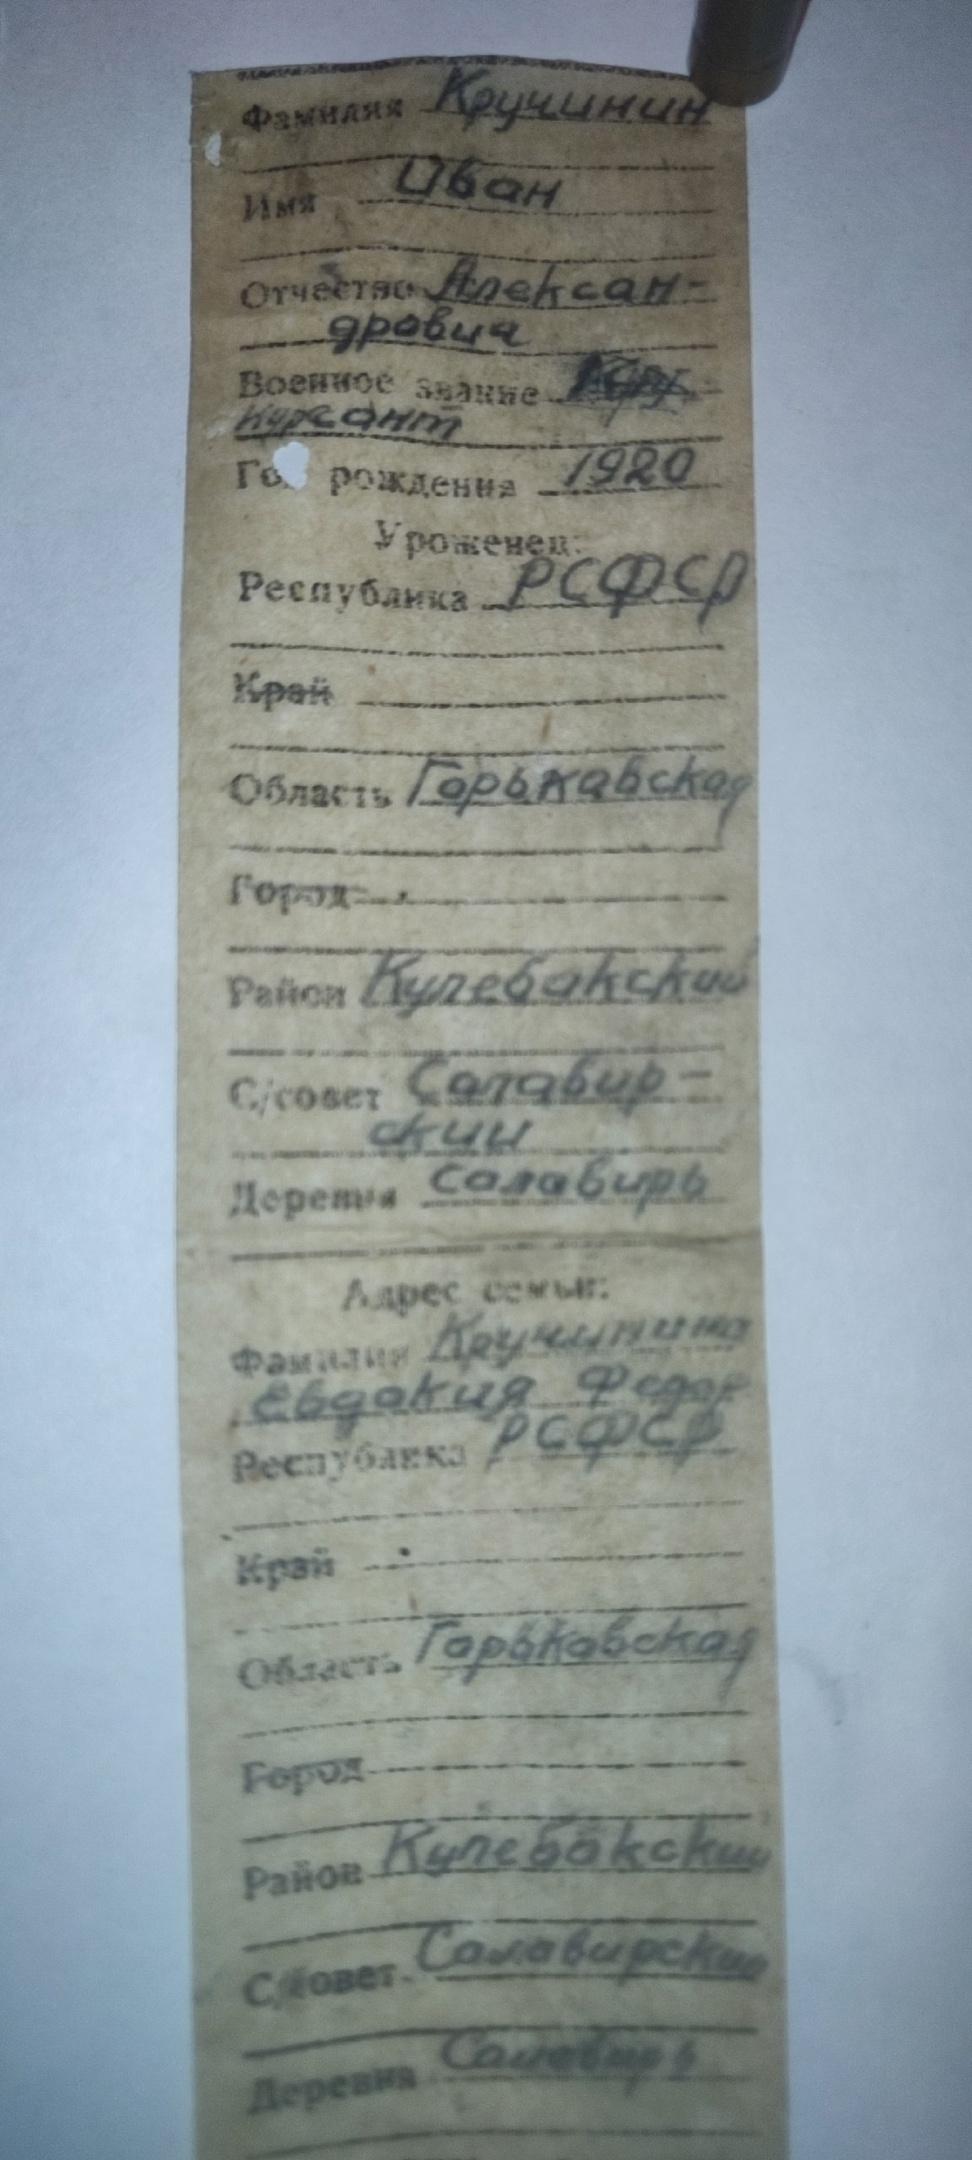 Фамилия Кручинин
Имя Иван
Отчество Алексан-
дрович
Военное звание
курсант
Год рождения 1920
Уроженец:
Республика РСФСР
Край
Область Горьковская
Город
Район Кулебакский
С/совет Салавир-
ский
Деревня Салавирь
Адрес семьи:
Фамилия Кручинина
Евдокия Федор
Республика РСФСР
Край
Область Горьковская
Город
Район Кулебакский
С/совет Салавирский
Деревня Салавирь